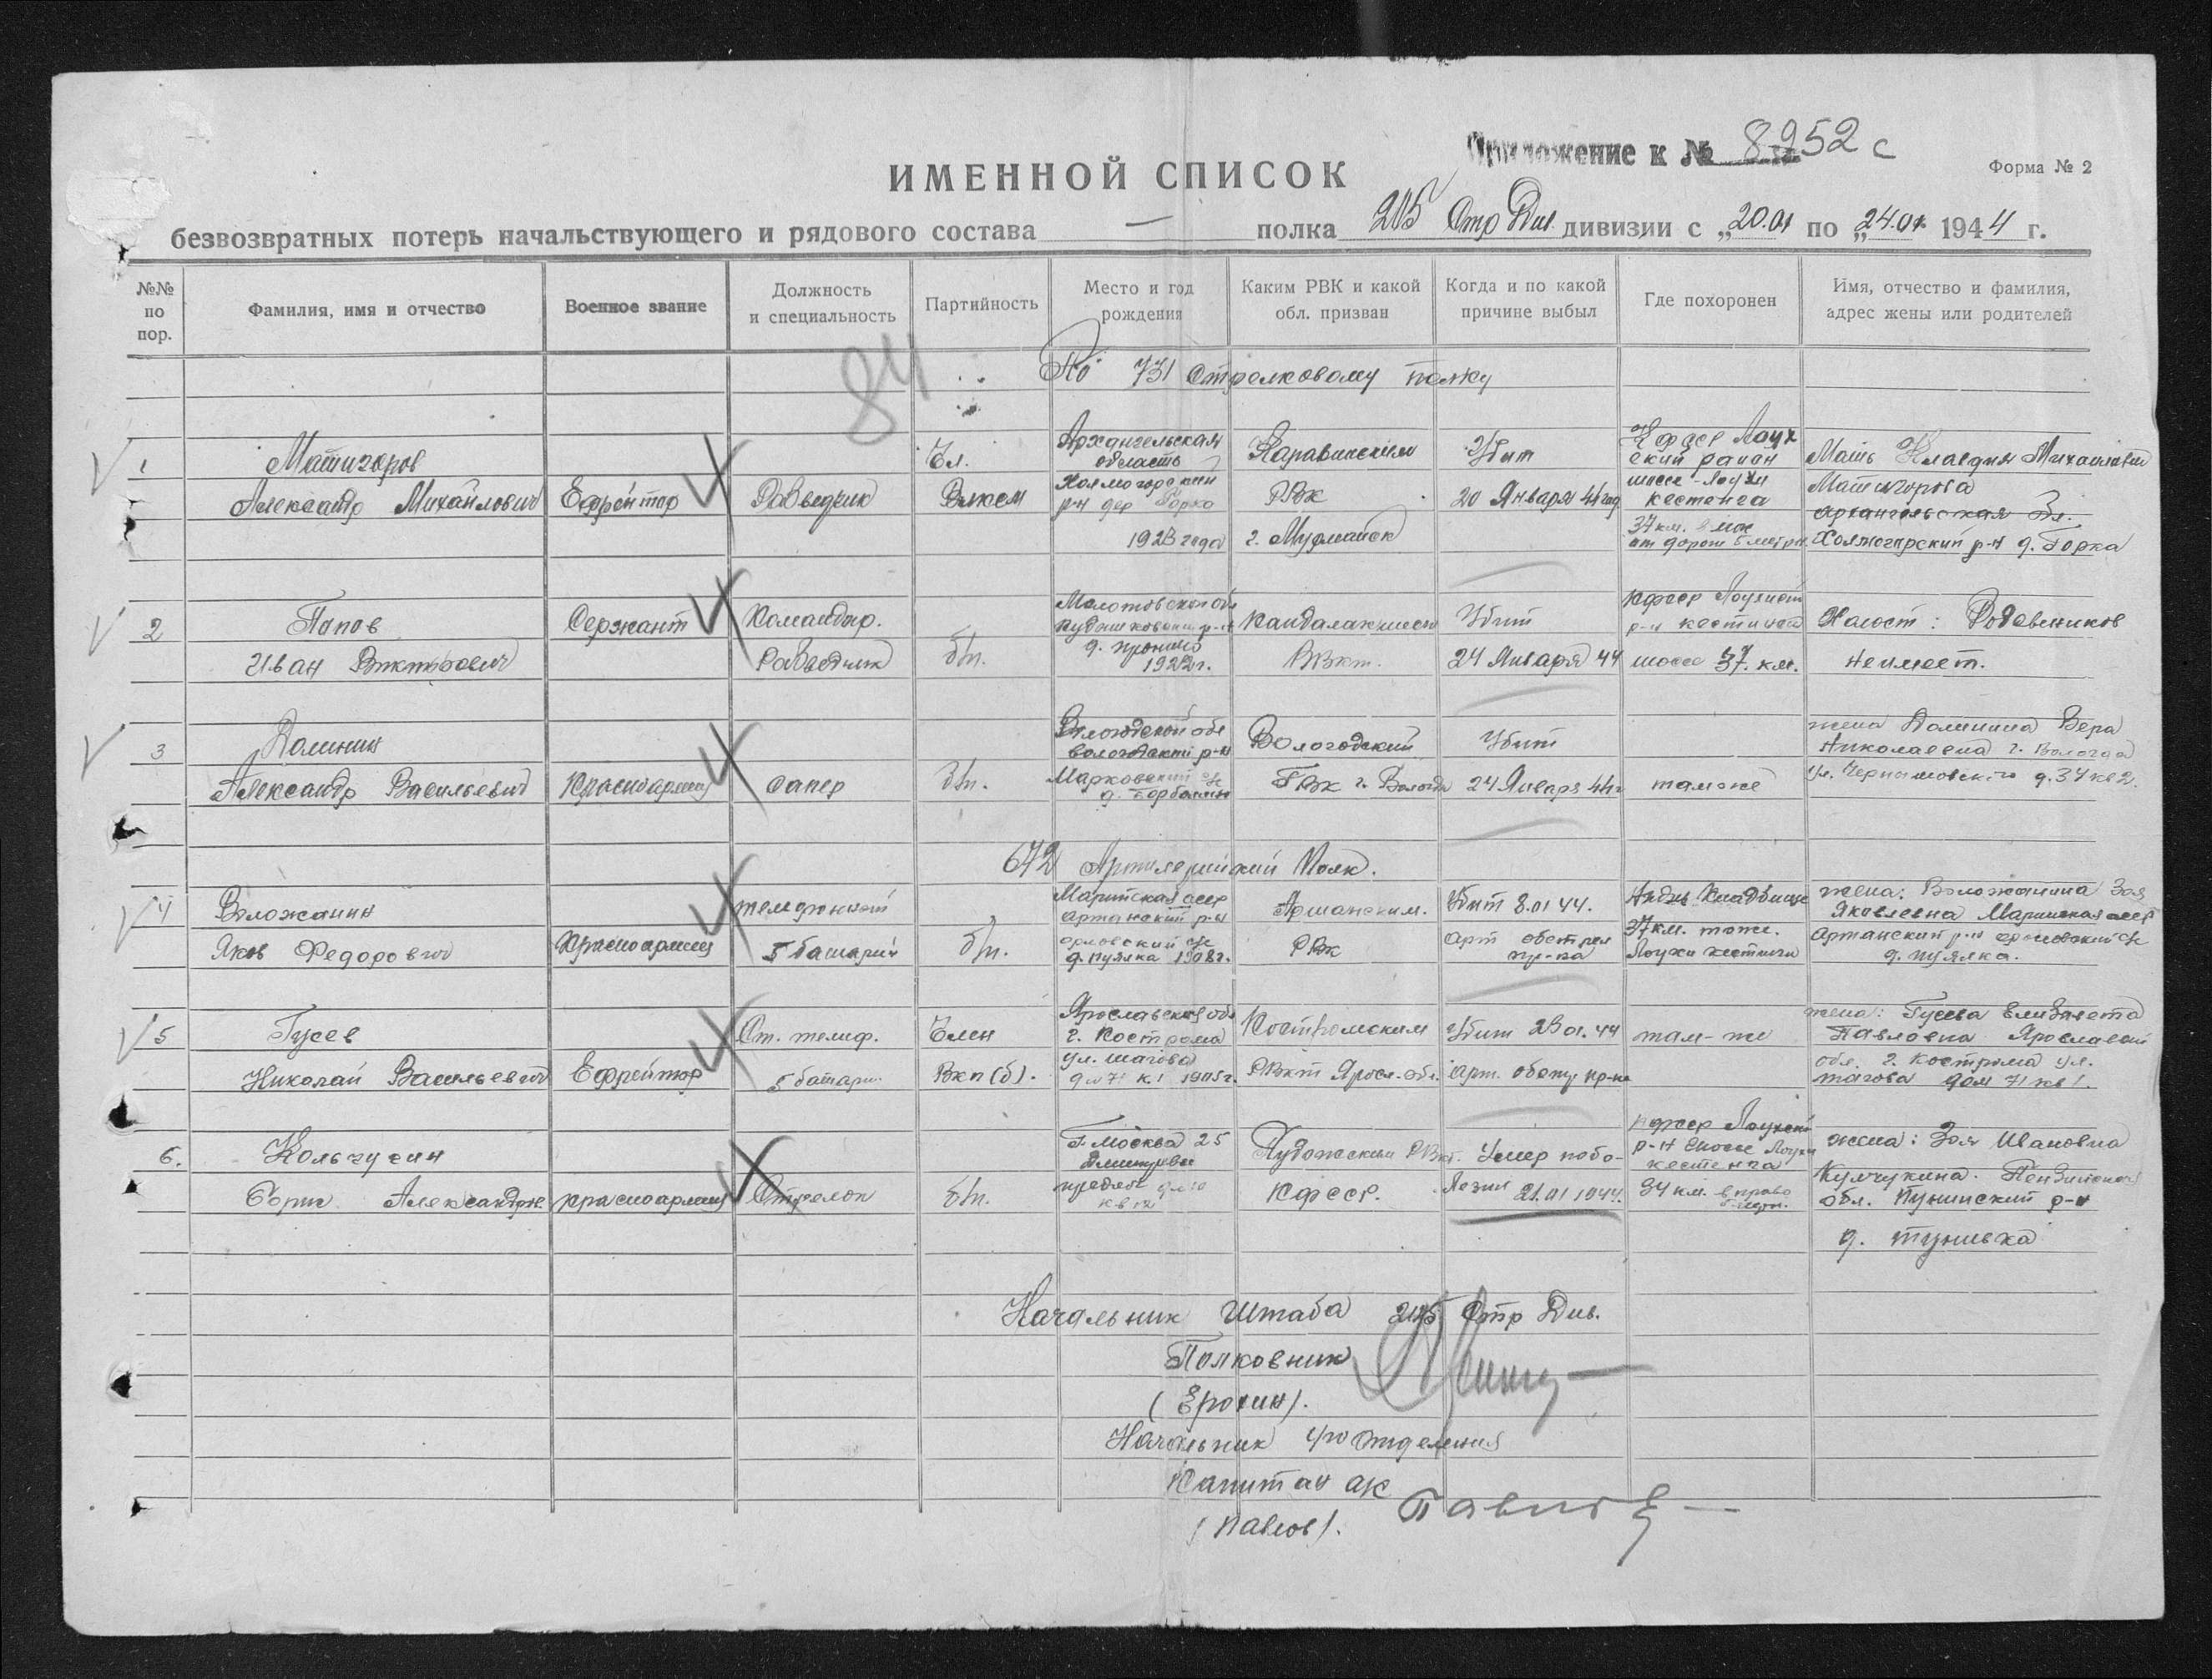 Приложение к № 8252 с
ИМЕННОЙ СПИСОК
Форма № 2
безвозвратных потерь начальствующего и рядового состава — полка 205 Стр Див. дивизии с „20.01 по „24.01 1944 г.
№№ по пор.
Фамилия, имя и отчество
Военное звание
Должность и специальность
Партийность
Место и год рождения
Каким РВК и какой обл. призван
Когда и по какой причине выбыл
Где похоронен
Имя, отчество и фамилия, адрес жены или родителей
84
По 731 Стрелковому полку
1
Матигоров
Александр Михайлович
Ефрейтор
Разведчик
Чл.
Влксм
Архангельская
область
Холмогорский
р-н дер Горка
1923 года
РВК
г. Мурманск
Убит
20 Января 44 год
ский район
шоссе - Лоухи
кестенга
37 км.
Мать Клавдия Михайловна
Матигорова
Архангельская Обл.
Холмогорский р-н д. Горка
2
Попов
Иван Викторович
Сержант
Командир.
Разведчик
б/п.
Молотовской обл
1922 г.
Убит
24 Января 44
Кфсср Лоухский
шоссе 37. км.
Холост: Родственников
не имеет.
3
Долинин
Александр Васильевич
Красноармеец
сапер
б/п.
Вологодской обл
вологодский р-н
Марковский с/с
Вологодский
ГВК г. Вологда
Убит
24 Января 44 г
тамже
жена Долинина Вера
Николаевна г. Вологда
д. 34 кв 2.
672 Артилерийский Полк.
4
Воложанин
Яков Федорович
Красноармеец
телефонист
5 батарея
б/п.
Марийская асср
орловский с/с
1908 г.
РВК
Убит 8.01 44.
арт обстрел
пр-ка
37 км.
жена: Воложанина Зоя
Яковлевна Марийская асср
5
Гусев
Николай Васильевич
Ефрейтор
Ст. телеф.
5 батари.
Член
Вкп(б).
Ярославская обл
г. Кострома
ул. шагова
д. 71 к 1 1905 г.
Костромским
РВкт Яросл. обл.
Убит 23 01. 44
арт. пр-ка
там-же
жена: Гусева Елизавета
Павловна
обл. г. Кострома ул.
шагова дом 71 кв 1.
6.
Кольчугин
Борис Александр.
красноармеец
Стрелок
б/п.
Г. Москва 25
кв 12
Пудожским РВкт.
Кфсср.
Умер по бо-
лезни 21.01 1944.
Кфсср Лоухский
р-н шоссе Лоухи
кестенга
34 км. вправо
жена: Зоя Ивановна
Пензинская
Начальник Штаба 205 Стр Див.
Полковник
(Ерохин).
Начальник 4го отделения
Капитан а/с
(Павлов).